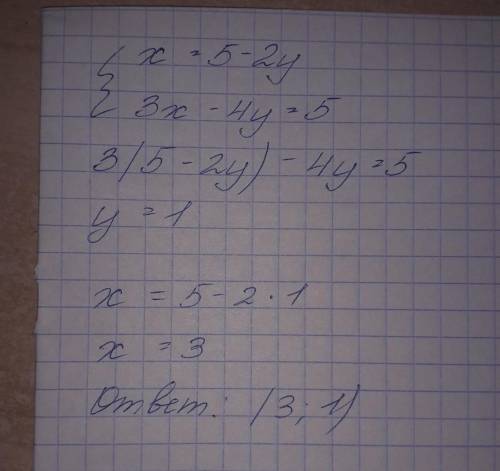 { x = 5 - 2y
3x - 4y = 5
3(5 - 2y) - 4y = 5
y = 1
x = 5 - 2 · 1
x = 3
Ответ: (3; 1)